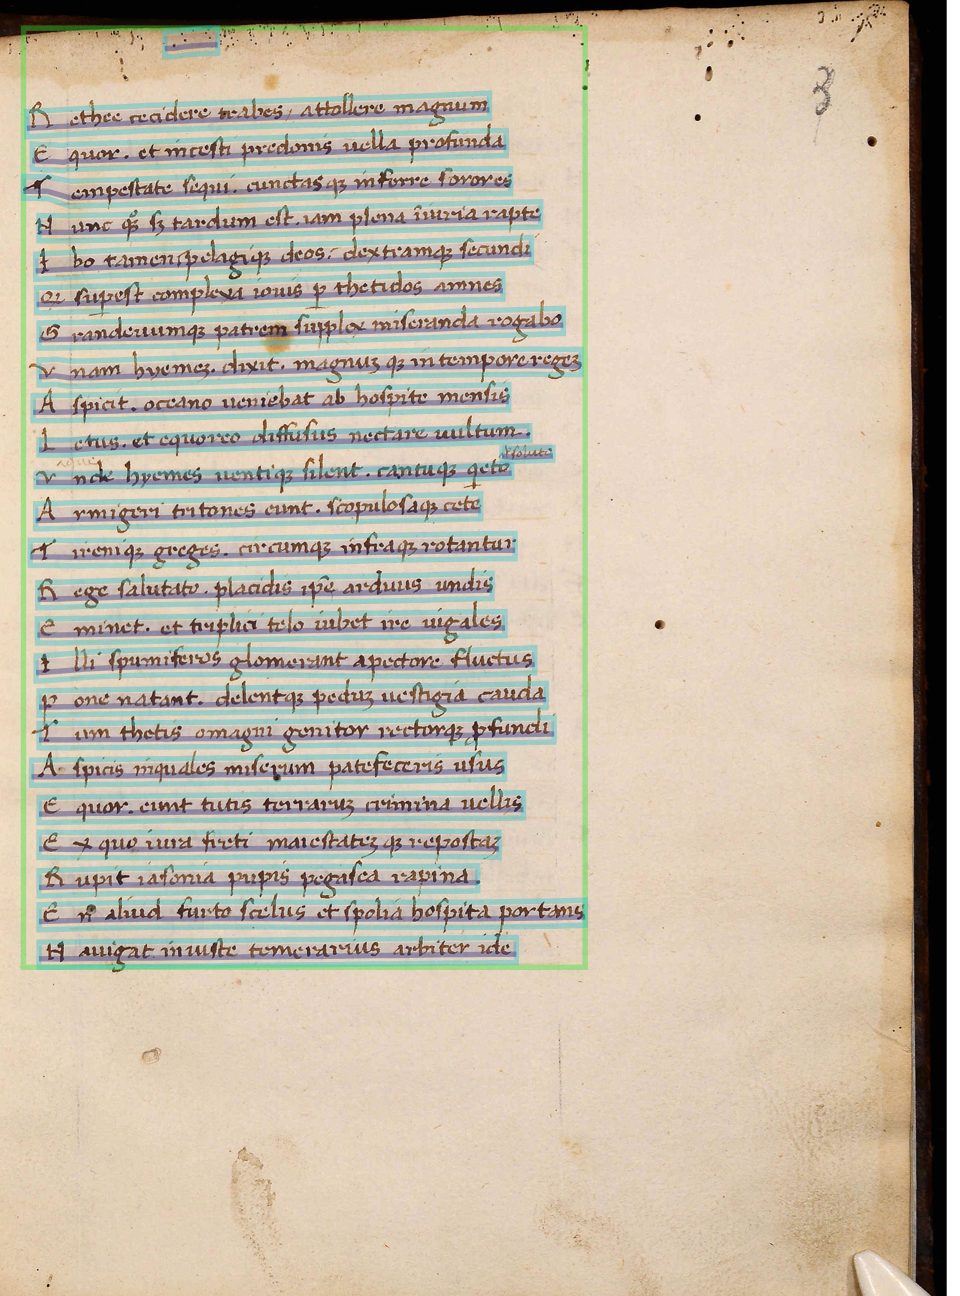 R ethee cecidere trabes, attollere magnum
E quor. et incesti predonis uella profunda
T empestate sequi. cunctasqꝫ inferre sorores
N unc qͦꝫ sꝫ tardum est. iam plena iniuria rapte
I bo tamen, pelagiqꝫ deos. dextramqꝫ secundi
Q͛ suꝑest complexa iouis ꝑ thetidos amnes
G randeuumqꝫ patrem supplex miseranda rogabo
V nam hyemeꝫ. dixit. magnuꝫ qꝫ in tempore regeꝫ
A spicit. oceano ueniebat ab hospite mensis
L etus. et equoreo diffusus nectare uultum.
V nde hyemes uentiqꝫ silent. cantuqꝫ q̇eto
A rmigeri tritones eunt. scopulosaqꝫ cete
T ireniqꝫ greges. circumqꝫ infraqꝫ rotantur
R ege salutato. placidis ip̄e arduus undis
E minet. et triplici telo iubet ire iugales
I lli spumiferos glomerant a pectore fluctus
P one natant. delentqꝫ peduꝫ uestigia cauda
T um thetis o magni genitor rectorqꝫ ꝓfundi
A spicis inquales miserum patefeceris usus
E quor. eunt tutis terraruꝫ crimina uellis
E x quo iura freti maiestateꝫ qꝫ repostaꝫ
R upit iasonia pupis pegasea rapina.
E n̄ aliud furto scelus et spolia hospita portans
N auigat iniuste temerarius arbiter ide